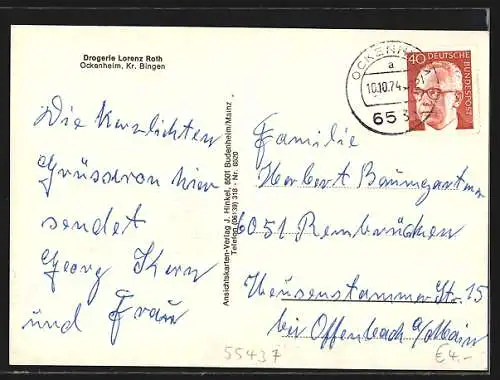 Drogerie Lorenz Roth
Ockenheim, Kr. Bingen
Die herzlichsten
Grüsse von hier
sendet
Georg Kern
und Frau
Ansichtskarten-Verlag J. Hinkel, 6501 Budenheim/Mainz
Telefon (06139) 318 - Nr. 6920
OCKENHEIM
a
10.10.74
653
40 DEUTSCHE BUNDESPOST
Familie
Herbert Baumgartner
6051 Rembrücken
Heusenstammer Str. 15
bei Offenbach a/Main
55437
€4.-